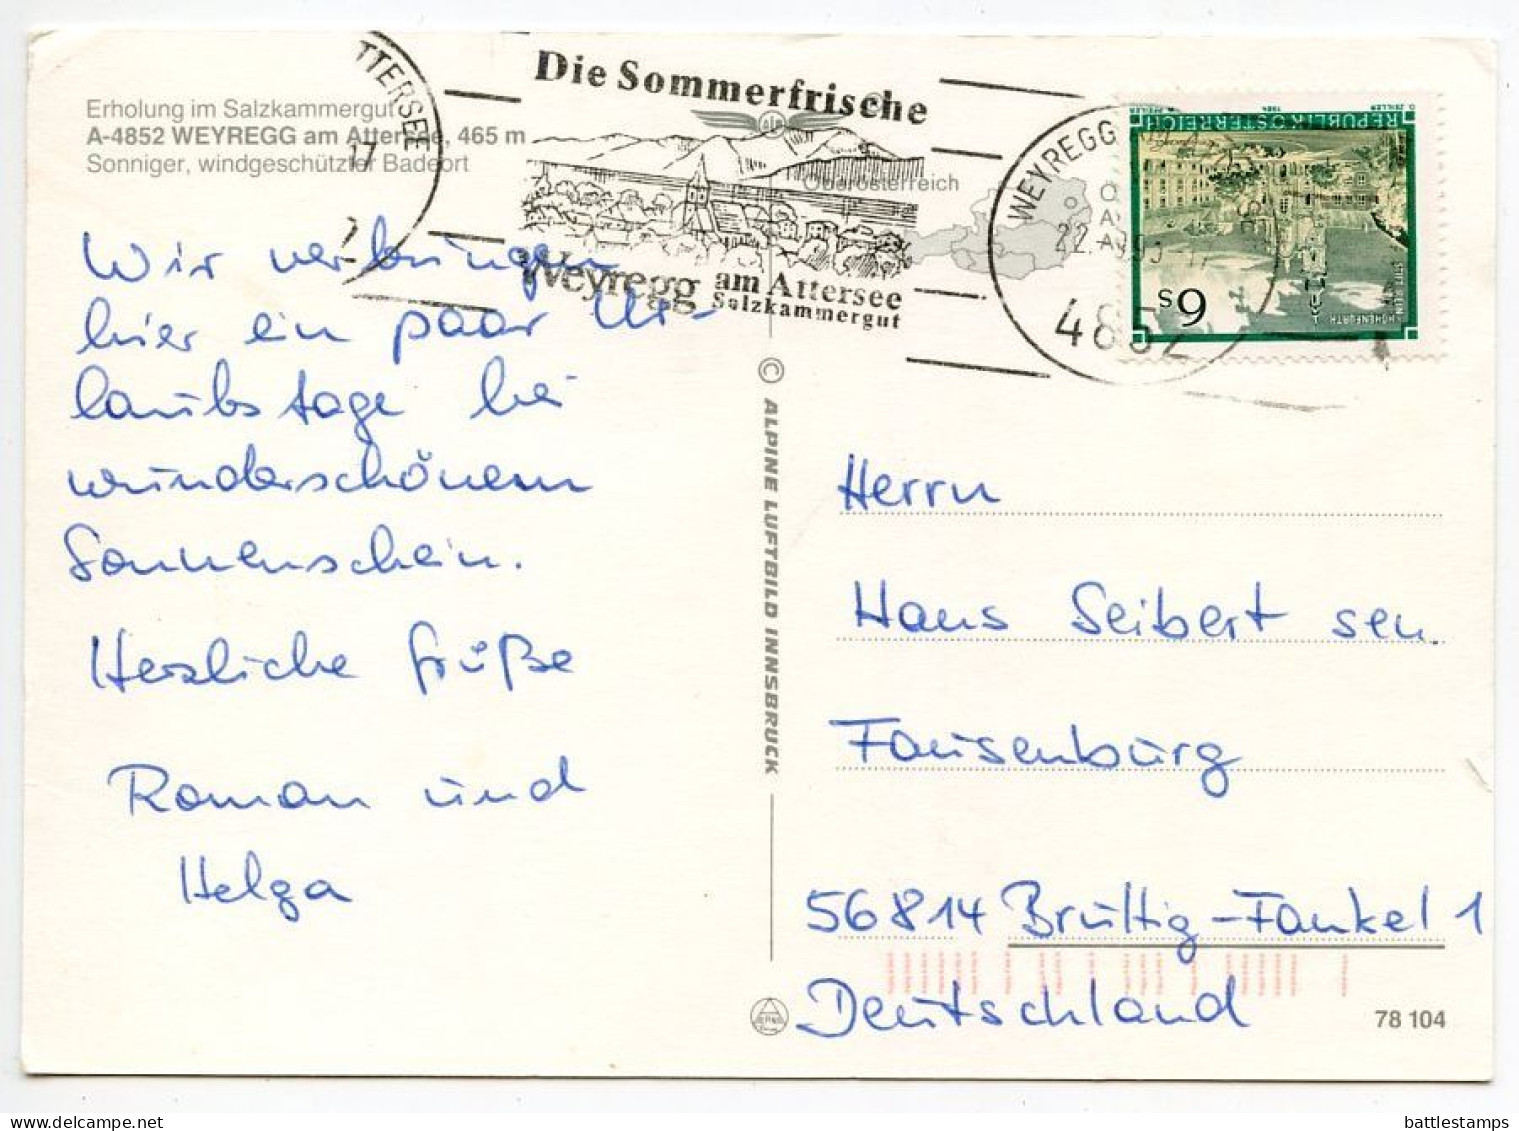 Erholung im Salzkammergut
A-4852 WEYREGG am Attersee, 465 m
Sonniger, windgeschützter Badeort
ATTERSEE
Die Sommerfrische
Weyregg am Attersee
Salzkammergut
Oberösterreich
WEYREGG
22.
4852
REPUBLIK ÖSTERREICH
6 S
Wir verbringen
hier ein paar Ur-
laubstage bei
wunderschönem
Sonnenschein.
Herzliche Grüße
Roman und
Helga
© ALPINE LUFTBILD INNSBRUCK
Herrn
Hans Seibert sen.
Fausenburg
56814 Bruttig-Fankel 1
Deutschland
78 104
battlestamps